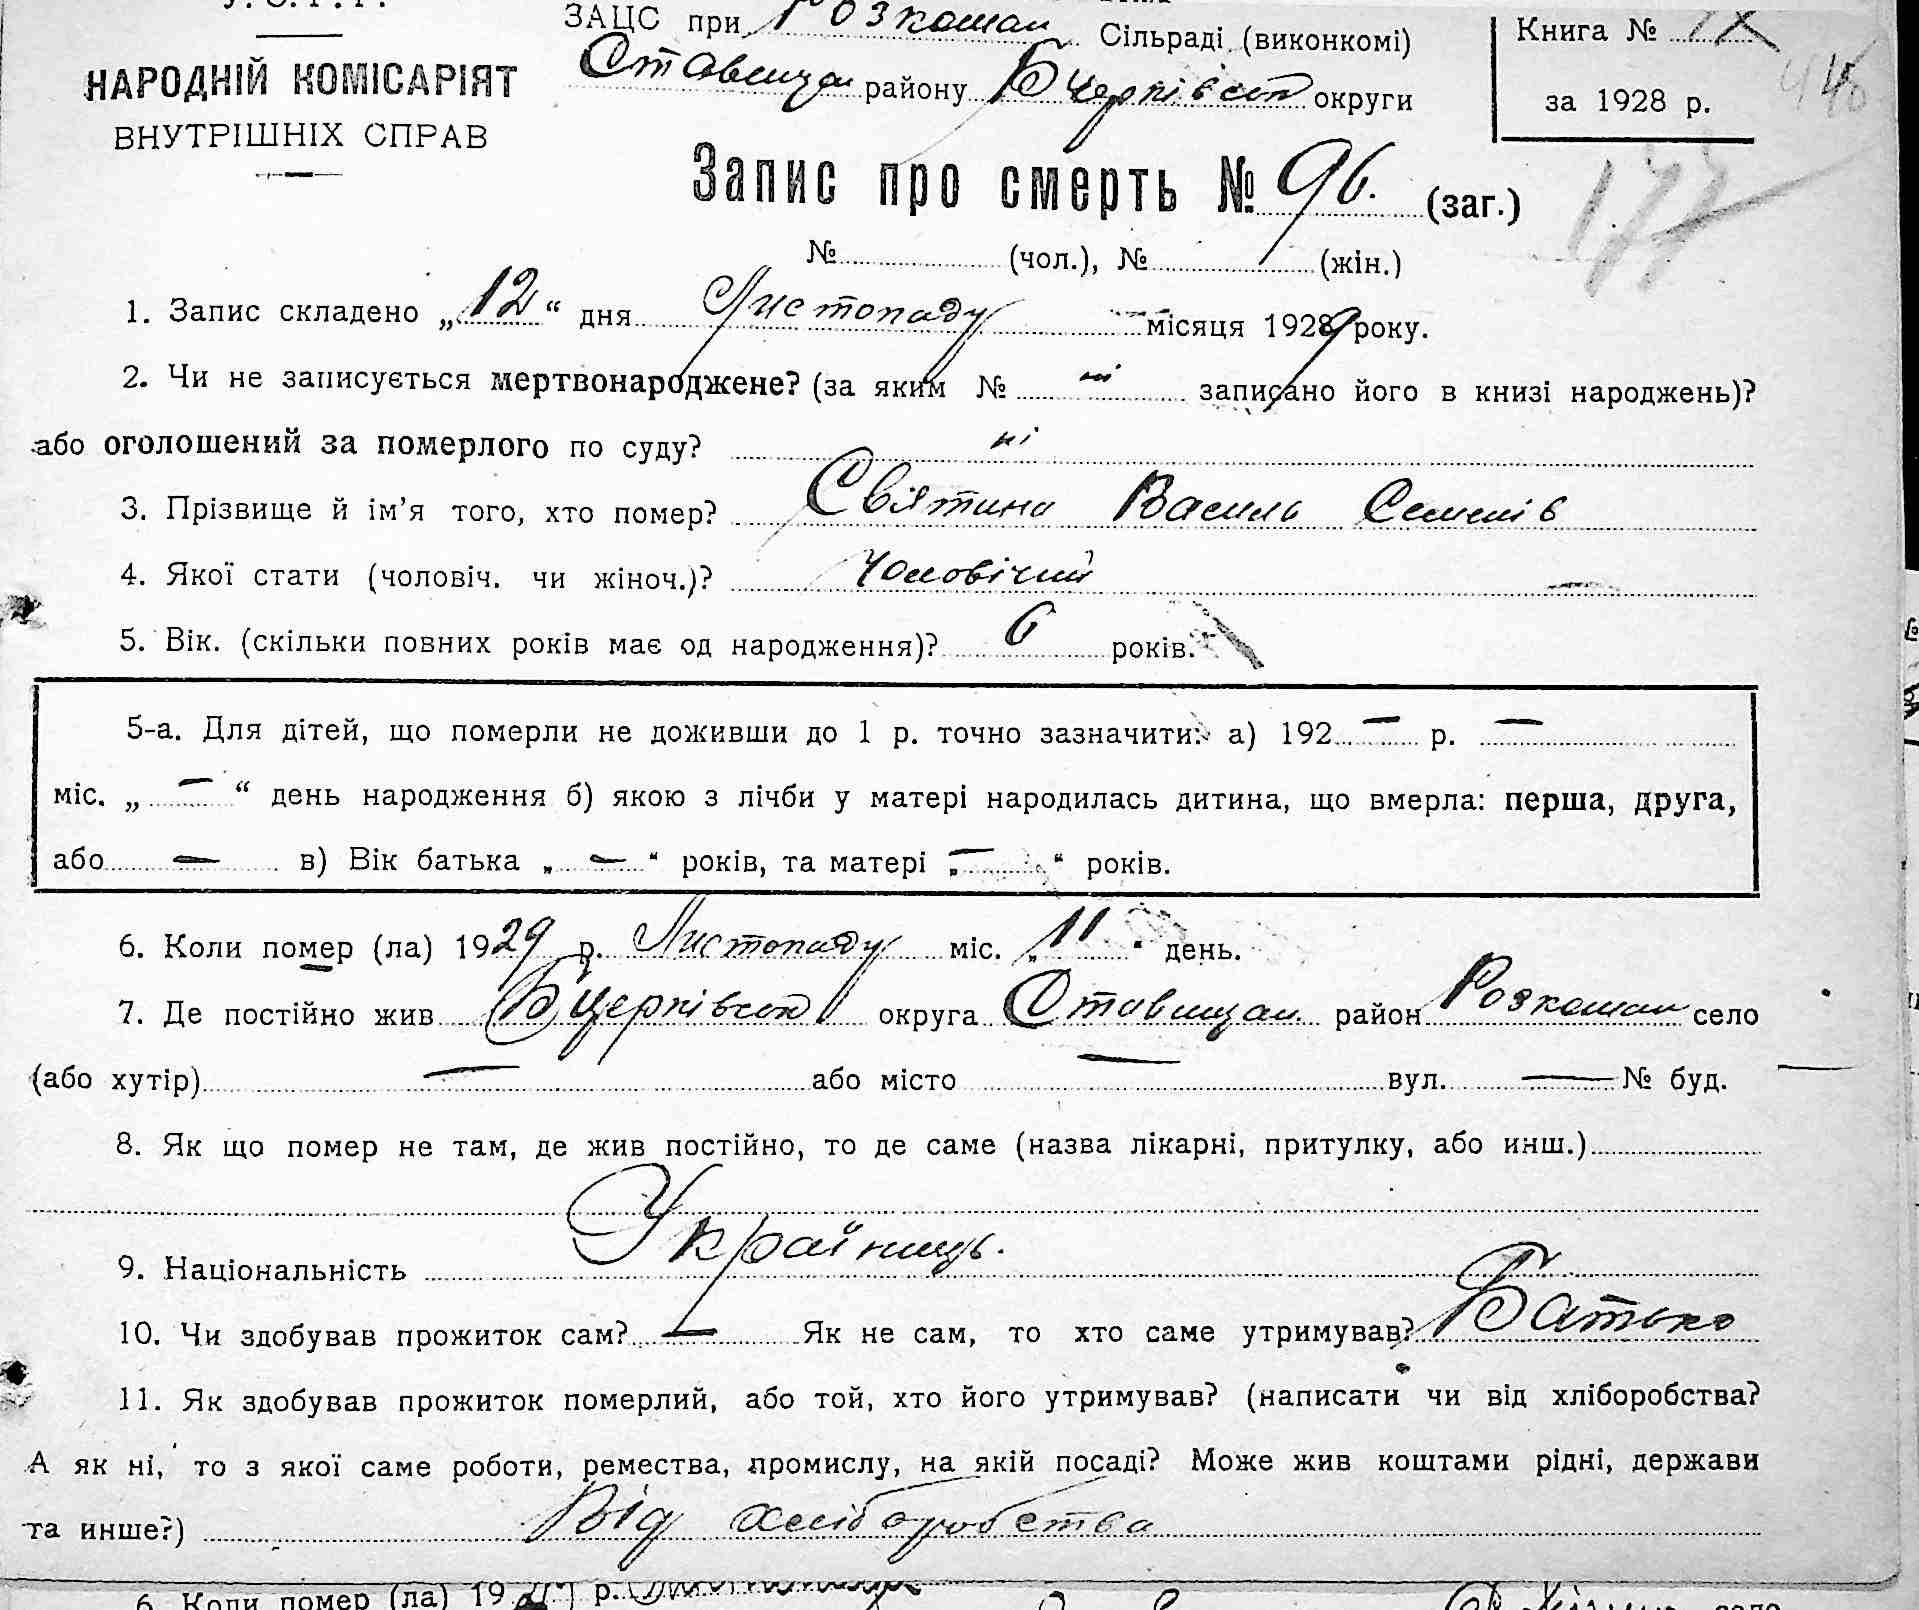 У. С. Р. Р.
ЗАЦС при Розкошан Сільраді (виконкомі)
Ставищан району Бцерківськ округи
НАРОДНІЙ КОМІСАРІЯТ
ВНУТРІШНІХ СПРАВ
Книга № IX
за 1928 р.
177
Запис про смерть № 96. (заг.)
№ (чол.), № (жін.)
1. Запис складено „12“ дня Листопаду місяця 1929 року.
2. Чи не записується мертвонароджене? (за яким № ні записано його в книзі народжень)?
або оголошений за померлого по суду? ні
3. Прізвище й ім’я того, хто помер? Святина Василь Семенів
4. Якої стати (чоловіч. чи жіноч.)? Чоловічий —
5. Вік. (скільки повних років має од народження)? 6 років.
5-а. Для дітей, що померли не доживши до 1 р. точно зазначити: а) 192 — р. —
міс. „ — “ день народження б) якою з лічби у матері народилась дитина, що вмерла: перша, друга,
або — в) Вік батька „ — “ років, та матері „ — “ років.
6. Коли помер (ла) 1929 р. Листопаду міс. „11“ день.
7. Де постійно жив Бцерківськ округа Ставищан район Розкошан село
(або хутір) — або місто — вул. — № буд. —
8. Як що помер не там, де жив постійно, то де саме (назва лікарні, притулку, або инш.)
9. Національність Україниць.
10. Чи здобував прожиток сам? — Як не сам, то хто саме утримував? Батько
11. Як здобував прожиток померлий, або той, хто його утримував? (написати чи від хліборобства?
А як ні, то з якої саме роботи, ремества, промислу, на якій посаді? Може жив коштами рідні, держави
та инше?) Від хліборобства
6. Коли помер (ла) 19 р.